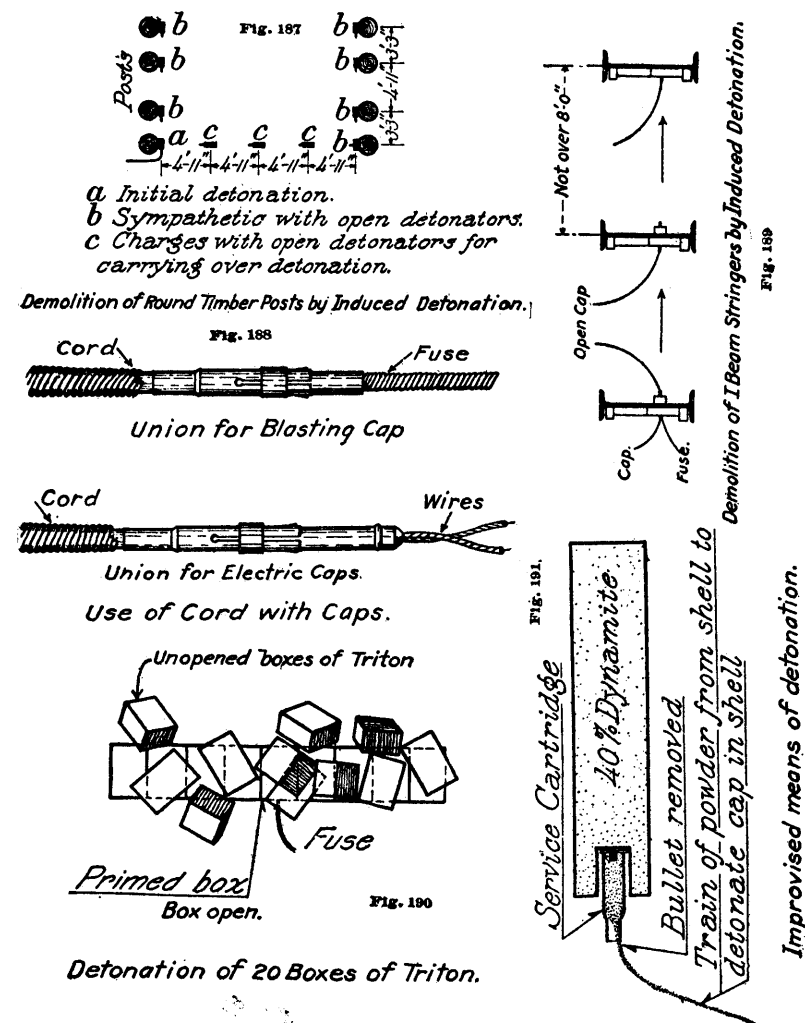 Fig. 187
b b
b b
Posts
b b
a c c c b
3'3" 4'-11" 3'3"
4'-11" 4'-11" 4'-11" 4'-11"
a Initial detonation.
b Sympathetic with open detonators.
c Charges with open detonators for
carrying over detonation.
Demolition of Round Timber Posts by Induced Detonation.
Fig. 188
Cord Fuse
Union for Blasting Cap
Cord Wires
Union for Electric Caps.
Use of Cord with Caps.
Unopened boxes of Triton
Fuse
Primed box
Box open.
Fig. 190
Detonation of 20 Boxes of Triton.
Not over 8'-0"
Open Cap
Cap.
Fuse.
Demolition of I Beam Stringers by Induced Detonation.
Fig. 189
Fig. 191.
Service Cartridge
40% Dynamite
Bullet removed
Train of powder from shell to
detonate cap in shell
Improvised means of detonation.